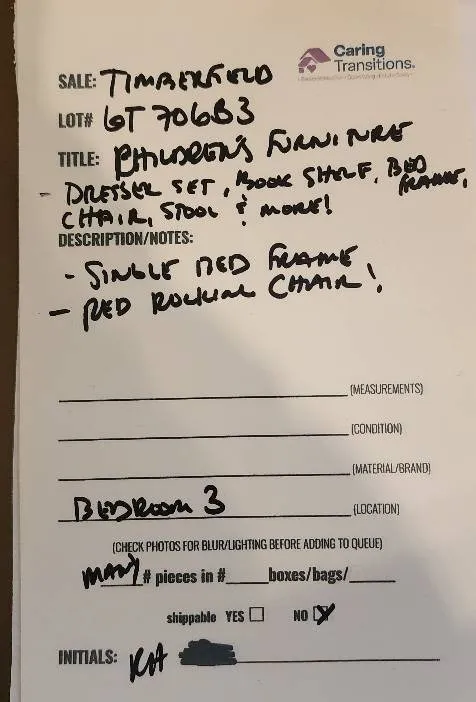 Caring
Transitions.
SALE: TIMBERFIELD
LOT# GT706B3
TITLE: CHILDREN'S FURNITURE
- DRESSER SET, BOOK SHELF, BED FRAME,
CHAIR, STOOL & MORE!
DESCRIPTION/NOTES:
- SINGLE BED FRAME
- RED ROCKING CHAIR!
(MEASUREMENTS)
(CONDITION)
(MATERIAL/BRAND)
BEDROOM 3 (LOCATION)
(CHECK PHOTOS FOR BLUR/LIGHTING BEFORE ADDING TO QUEUE)
MANY # pieces in #____boxes/bags/____
shippable YES ☐ NO ☒
INITIALS: KH